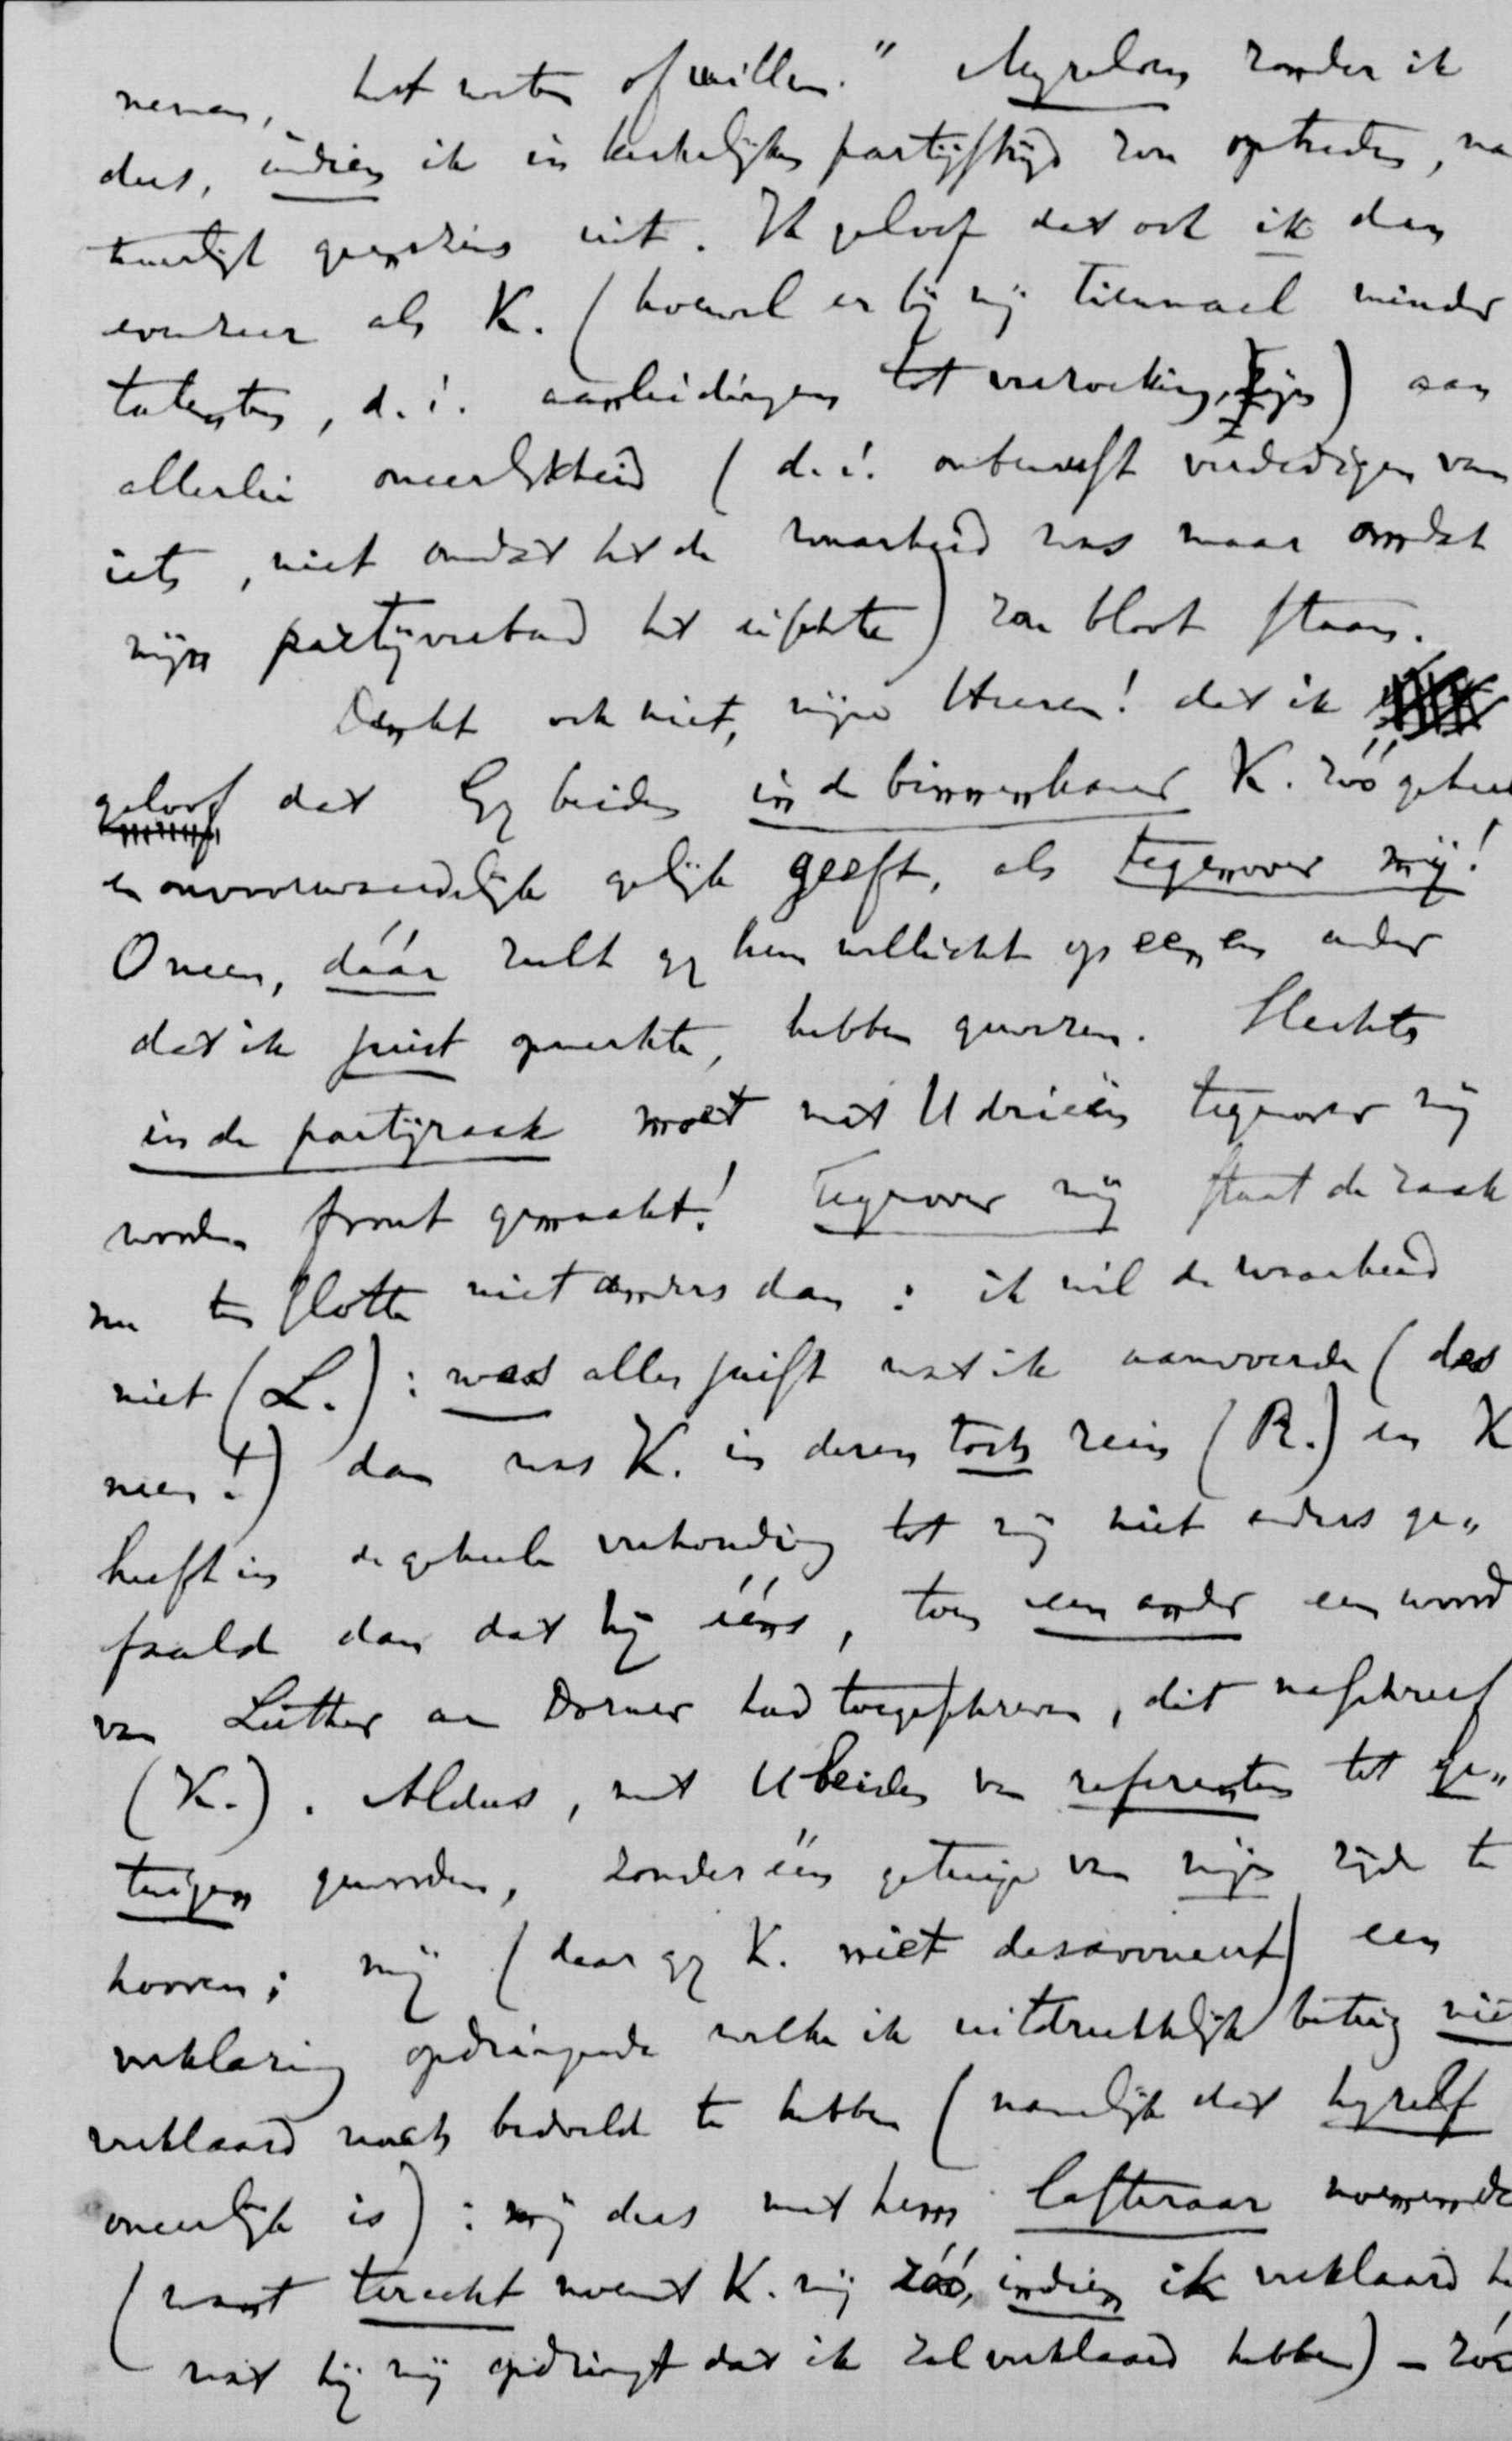 nemen, het weten of willen." Mijzelven zonder ik
dus, indien ik in kerkelijken partijstrijd zou optreden, na
tuurlijk geenszins uit. Ik geloof dat ook ik dan
evenzeer als K. (hoewel er bij mij tienmaal minder
talenten, d.i. aanleidingen tot verzoeking, zijn) aan
allerlei oneerlijkheid (d.i. onbewust verdedigen van
iets, niet omdat het de waarheid was maar omdat
mijn partijverband het eischte) zou bloot staan.
Denkt ook niet, mijne Heeren! dat ik
geloof dat Gy beiden in de binnenkamer K. zóó geheel
en onvoorwaardelijk gelijk geeft, als tegenover mij!
O neen, dáár zult gy hem wellicht op een en ander
dat ik juist opmerkte, hebben gewezen. Slechts
in de partijzaak moet met U drieën tegenover mij
worden front gemaakt! Tegenover mij staat de zaak
nu ten slotte niet anders dan: ik wil de waarheid
niet (L.): was alles juist wat ik aanvoerde (des
neen!) dan was K. in dezen toch rein (R.) en K
heeft in de geheele verhouding tot mij niet anders ge„
faald dan dat hij ééns, toen een ander een woord
van Luther aan Dorner had toegeschreven, dit naschreef
(K.). Aldus, met U beiden van referenten tot ge„
tuigen geworden, zonder één getuige van mijn zijde te
hooren; mij (daar gy K. niet desavoueert) een
verklaring opdringende welke ik uitdrukkelijk betuig nie
verklaard noch bedoeld te hebben (namelijk dat hyzelf
oneerlijk is): mij dus met hem lasteraar noemende
(want terecht noemt K. mij zóó, indien ik verklaard h
wat hij mij opdringt dat ik zal verklaard hebben) – zóó